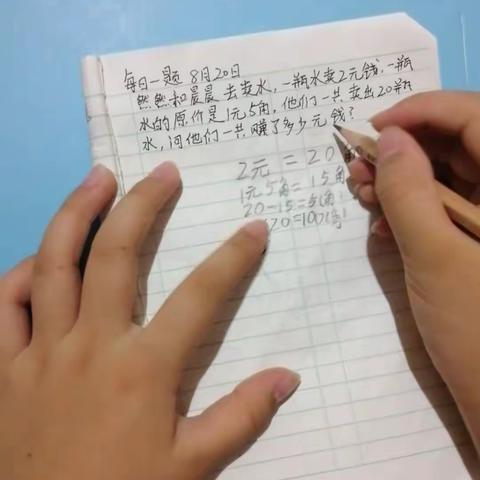 每日一题 8月20日
然然和晨晨去卖水,一瓶水卖2元钱,一瓶
水的原价是1元5角,他们一共卖出20瓶
水,问他们一共赚了多少元钱?
2元 = 20
1元5角 = 15角
20-15=5(角)
20=100(角)